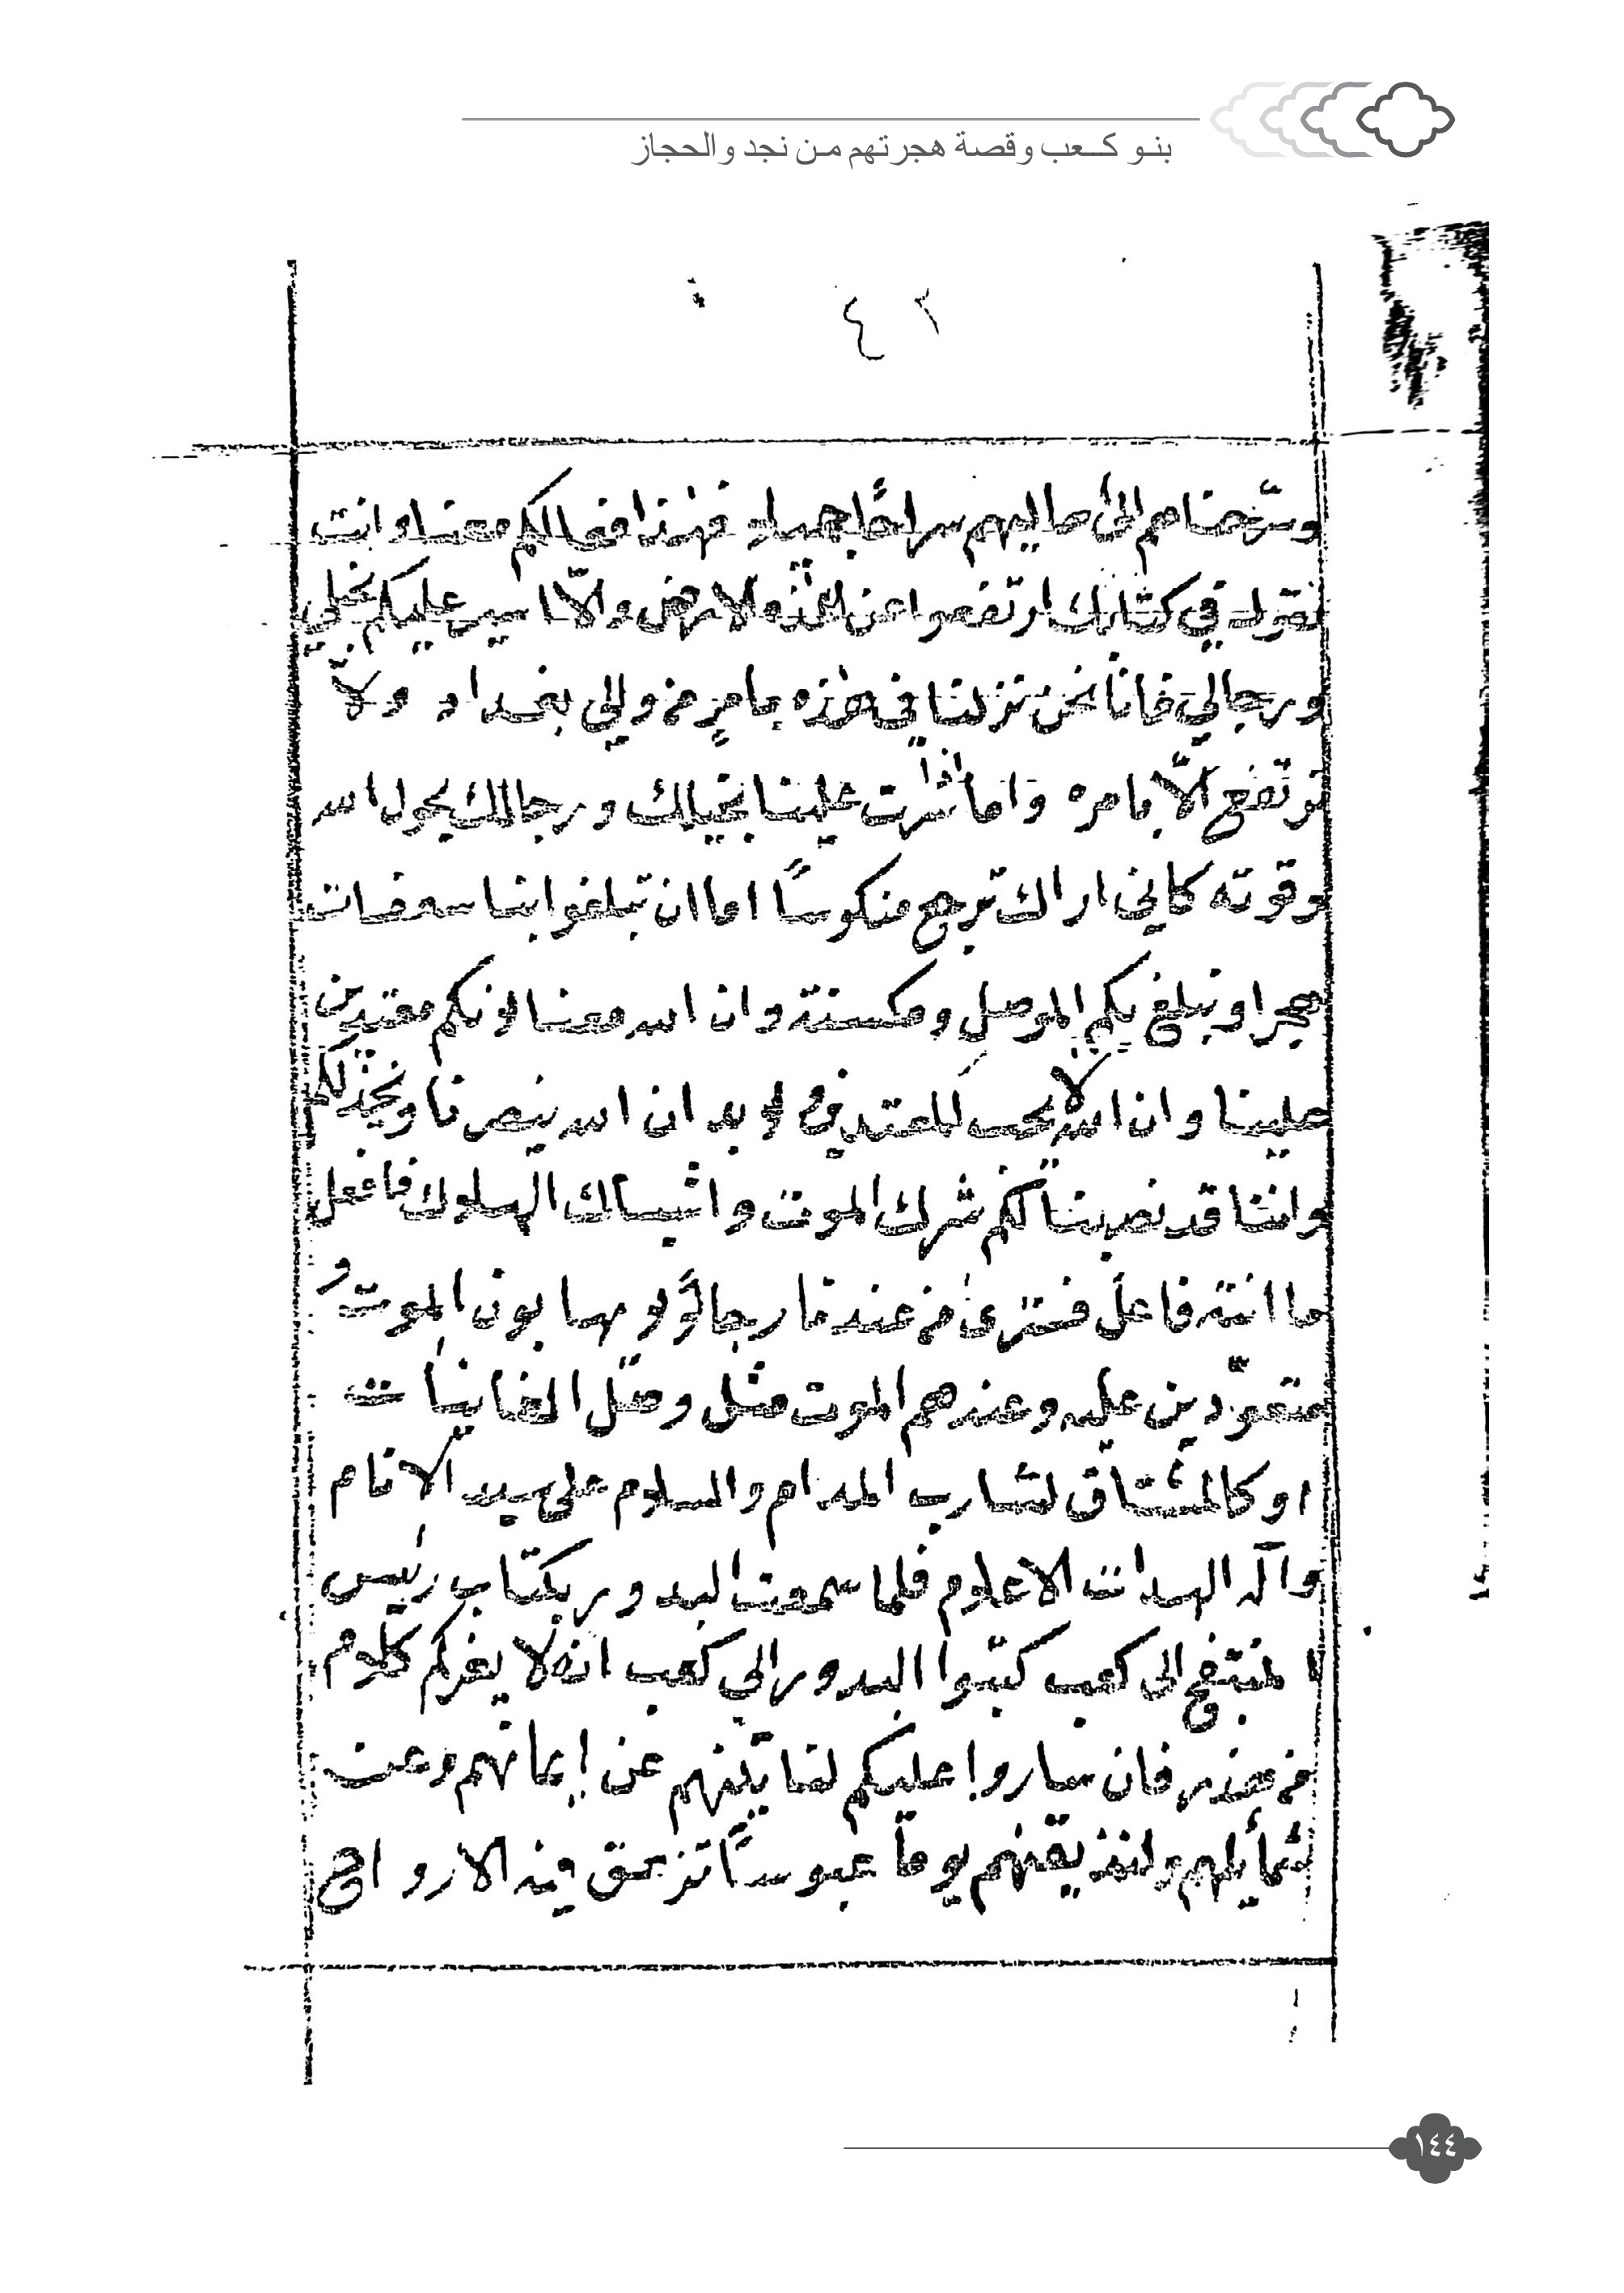 بنو كعب وقصة هجرتهم من نجد والحجاز
٢ ٤
وسرّحناهم الى اهاليهم سراحًا جميلا فهذا فعالكم معنا وانت
تقول في كتابك ارتفعوا عن هذه الارض والّا اسير عليكم بخيلي
ورجالي فانا نحن نزلنا في هذه بامرٍ من والي بغداد ولا
نرتفع الّا بامره واما شرت علينا بخيلك ورجالك بحول الله
وقوته كاني اراك ترجع منكوسًا اما ان تبلغوا بنا سعفات
هجر او نبلغ بكم الموصل وان الله معنا لانكم معتدين
علينا وان الله لا يحب المعتدين ولا بد ان الله ينصرنا ويخذلكم
واننا قد نصبنا لكم شرك الموت واشباك الهلاك فافعل
ما انته فاعل فترى من عندنا رجالًا لا يهابون الموت و
متعوّدين عليه وعندهم الموت مثل وصل الغانيات
او كالمشتاق لشارب المدام والسلام على سيد الانام
وآله الهدات الاعلام فلما سمعت البدور بكتاب رئيس
المنتفج الى كعب كتبوا البدور الى كعب انه لا يغركم كلام
من عذر فان ساروا عليكم لناتينهم عن إيمانهم وعن
شمأيلهم ولنذيقنهم يوما عبوسًا تزهق فيه الارواح
١٤٤